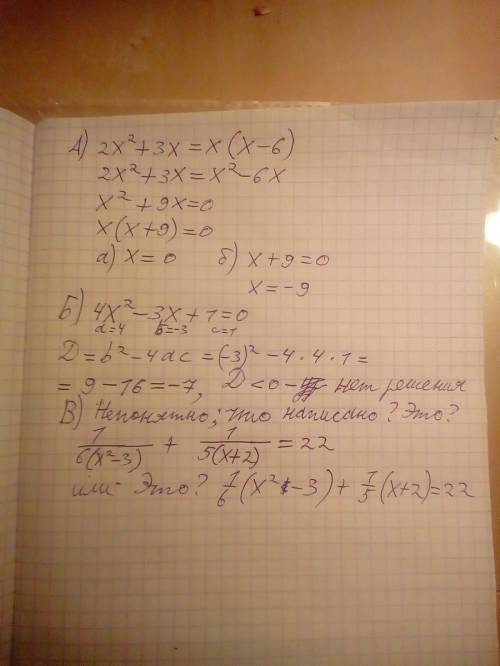 А) 2x² + 3x = x(x-6)
2x² + 3x = x² - 6x
x² + 9x = 0
x(x+9) = 0
а) x = 0 б) x + 9 = 0
x = -9
Б) 4x² - 3x + 1 = 0
a=4 b=-3 c=1
D = b² - 4ac = (-3)² - 4·4·1 =
= 9 - 16 = -7, D < 0 - нет решения
В) Непонятно; что написано? Это?
1/6(x²-3) + 1/5(x+2) = 22
или Это? 1/6 (x² - 3) + 1/5 (x+2) = 22